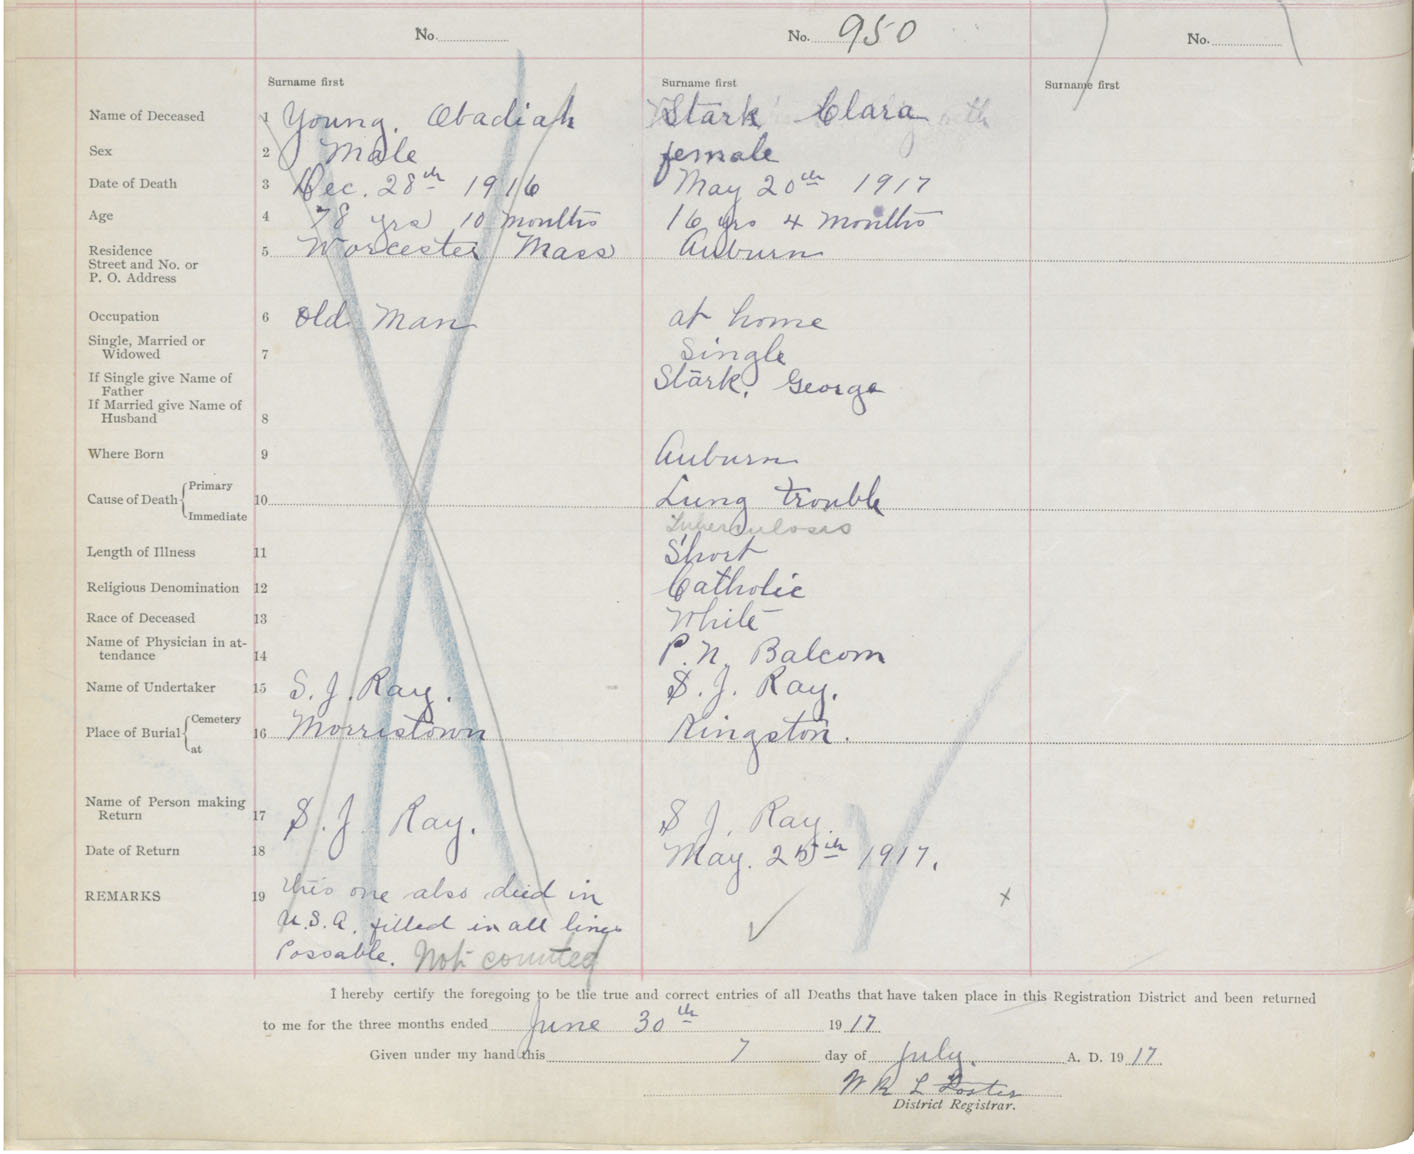 No. No. 950 No.
Surname first Surname first Surname first
Name of Deceased 1 Young, Obadiah Stark, Clara
Sex 2 Male female
Date of Death 3 Dec. 28th 1916 May 20th 1917
Age 4 78 yrs 10 months 16 yrs 4 months
Residence 5 Worcester Mass Auburn
Street and No. or
P. O. Address
Occupation 6 Old Man at home
Single, Married or
Widowed 7 Single
If Single give Name of
Father Stark, George
If Married give Name of
Husband 8
Where Born 9 Auburn
Cause of Death Primary
10 Lung trouble
Immediate Tuberculosis
Length of Illness 11 Short
Religious Denomination 12 Catholic
Race of Deceased 13 White
Name of Physician in at-
tendance 14 P. N. Balcom
Name of Undertaker 15 S. J. Ray. S. J. Ray.
Place of Burial Cemetery
16 Morristown Kingston.
at
Name of Person making
Return 17 S. J. Ray. S J. Ray.
Date of Return 18 May. 25th 1917.
REMARKS 19 this one also died in
U.S.A. filled in all lines
Possable. Not counted
I hereby certify the foregoing to be the true and correct entries of all Deaths that have taken place in this Registration District and been returned
to me for the three months ended June 30th 1917
Given under my hand this 7 day of July. A. D. 1917
W R L Foster
District Registrar.